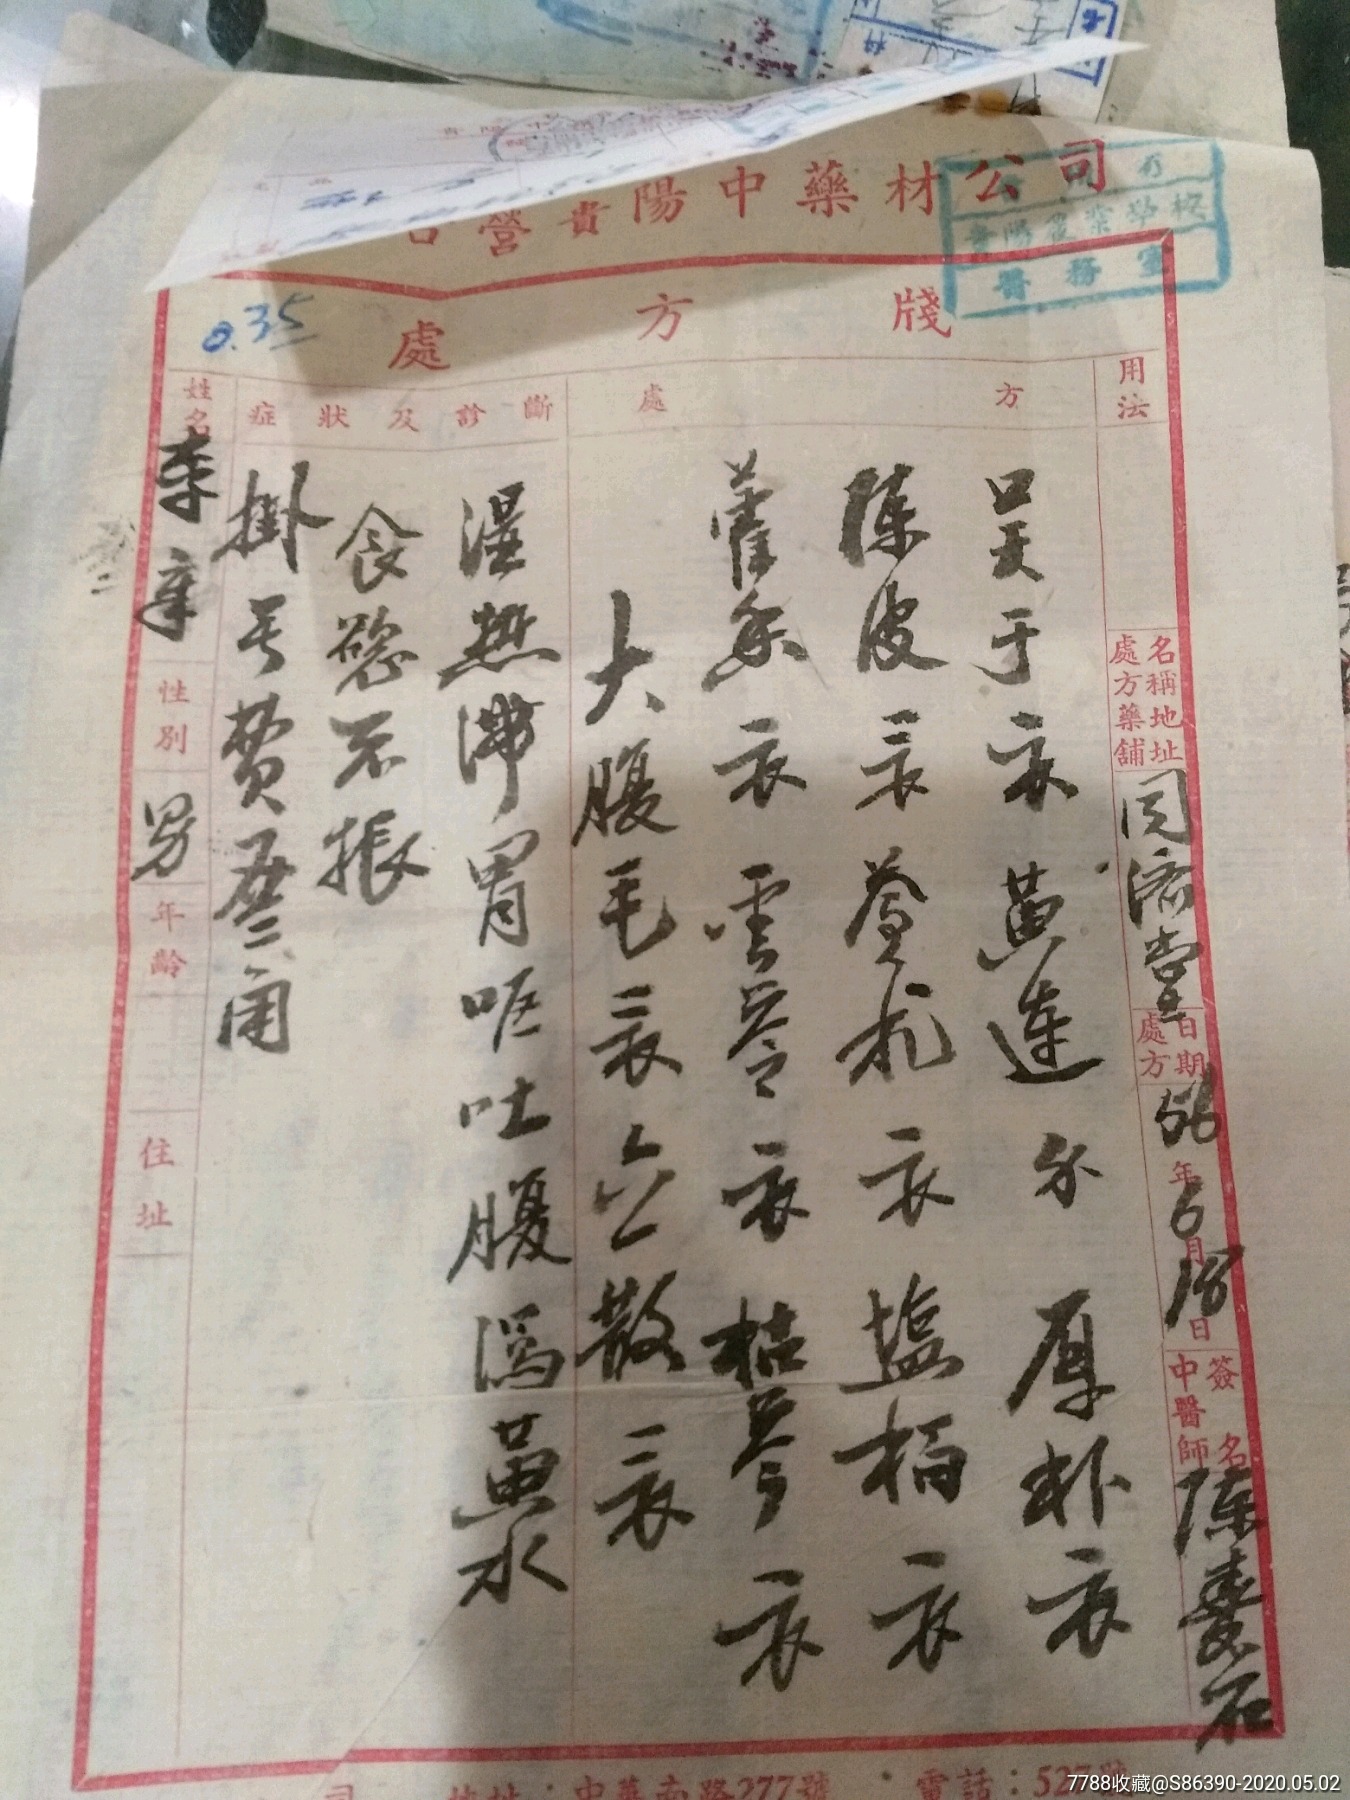 營貴陽中藥材公司
貴陽農業學校
醫務室
0.35
處方牋
用法
處方
症狀及診斷
姓名
吴于 黄連 厚朴
陳皮 蒼术 塩柏
藿香 雲苓 枯芩
大腹毛 六一散
湿热滞胃呕吐腹瀉黄水
食慾不振
掛号费叁角
李章
性別
男
年齡
住址
處方藥舖
名稱地址
同濟堂
處方
日期
56年6月18日
中醫師
簽名
陳壽石
地址：中華南路277號 電話：527號
7788收藏@S86390-2020.05.02